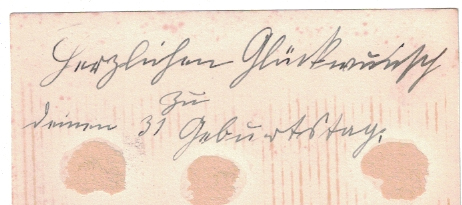 Herzlichen Glückwunsch
zu
deinen 31 Geburtstag.